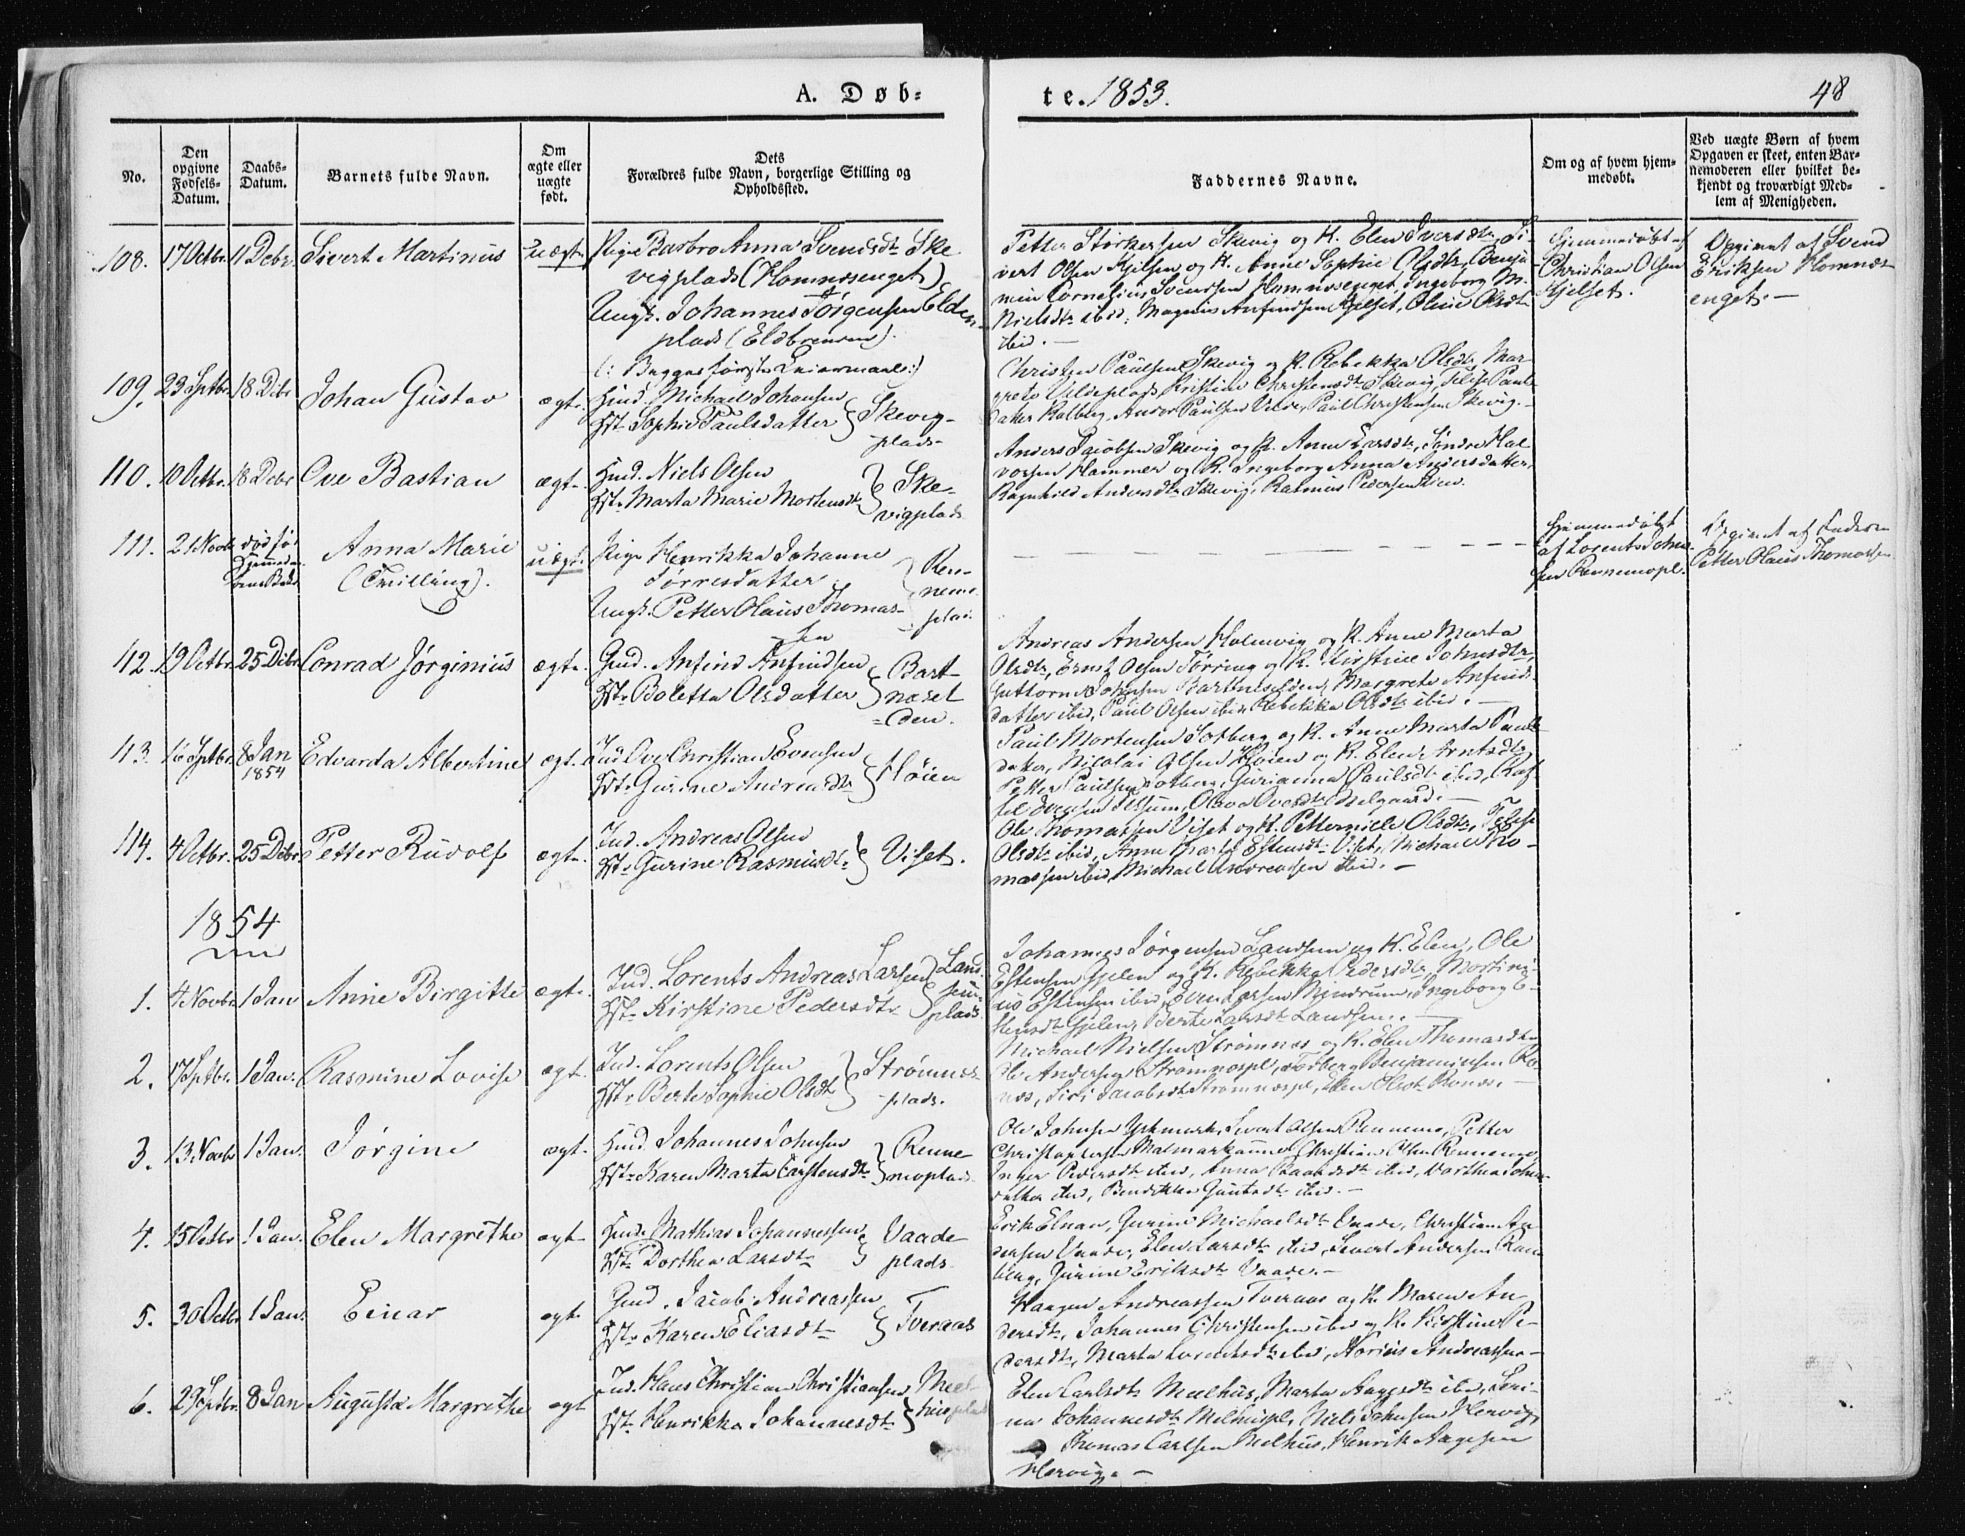 A. Døb-
te. 1853.
48
No.
Den opgivne Fødsels-Datum.
Daabs-Datum.
Barnets fulde Navn.
Om ægte eller uægte født.
Dets Forældres fulde Navn, borgerlige Stilling og Opholdssted.
Faddernes Navne.
Om og af hvem hjem-medøbt.
Ved uægte Børn af hvem Opgaven er skeet, enten Bar-nemoderen eller hvilket be-kjendt og troværdigt Med-lem af Menigheden.
108. 17 Octbr. 11 Debr. Sivert Martinus uægt.
Pige Barbro Anna Svendsdtr Ske-
vigplads (Homnesenget)
Ungk. Johannes Jørgensen Elden-
plads (Eldbrennen).
Petter Størkersen Skevig og K. Elen Iversdtr, Si-
vert Olsen Hjelsen og K. Anne Sophie Olsdtr, Benja-
min Cornelius Svendsen Homnesenget, Ingeborg M.
Nielsdtr ibid, Magnus Anfindsen Hjelset, Oline Olsdtr
ibid. —
Hjemmedøbt af
Christian Olsen
Hjelset.
Opgivet af Svend
Eriksen Homnes-
enget. —
109. 23 Sptbr. 18 Debr Johan Gustav ægt.
Hmd. Michael Johansen
Hst. Sophie Paulsdatter } Skevig-
plads
Christen Paulsen Skevig og K. Rebekka Olsdtr, Mar-
grete Veldeplads, Kristine Christensdtr Skevig,
datter Kolberg, Anders Paulsen Velde, Paul Christensen Skevig. —
110. 10 Octbr. 18 Debr Ove Bastian ægt.
Hmd. Niels Olsen
Hst. Marta Marie Mortensdtr } Ske-
vigplads
Anders Jacobsen Skevig og K. Anne Larsdtr, Søndre Hal-
vorsen Hammer og K. Ingeborg Anna Andersdatter,
Ragnhild Andersdtr Skevig, Rasmus Pedersen
111. 21 Novbr dødfø Anna Marie uægt.
(Trilling).
Pige Henrikka Johanne
Torresdatter
Ungk. Petter Olaus Thomas-
sen
} Ren-
nemo
plads
Hjemmedøbt
af Lorents Johan-
sen Rennemopl.
Opgivet af Faderen
Petter Olaus Thomassen
112. 19 Octbr. 25 Debr Conrad Jørginius ægt.
Gmd. Anfind Anfindsen
Hst. Boletta Olsdatter } Bart-
neset
den.
Andreas Andersen Holmvig og K. Anne Marta
Olsdtr, Ernst Olsen Tørring og K. Kirstine Johnsdtr,
Guttorm Johnsen Bartneselden, Margrete Anfinds-
datter ibid, Paul Olsen ibid, Rebekka Olsdtr ibid. —
113. 16 Sptbr. 8 Jan 1854 Edvarda Albertine ægt.
Ind. Ove Christian Evensen
Hst. Gurine Andreasdtr } Høien
Paul Mortensen Solberg og K. Anne Marta Pauls-
datter, Nicolai Olsen Høien og K. Elen Arntsdtr
Petter Paulsen Solberg, Gurianna Paulsdtr ibid, Raf-
114. 4 Octbr. 25 Debr Petter Rudolf ægt.
Ind. Andreas Olsen
Hst. Gurine Rasmusdtr } Viset.
Ole Thomassen Viset og K. Pettermille Olsdtr,
Olsdtr ibid, Anne Marta Estensdtr Viset, Michael Tho-
massen ibid, Michael Andreassen ibid. —
1854
1. 4 Novbr 1 Jan Anne Birgitte ægt.
Ind. Lorents Andreas Larsen
Hst. Kirstine Pedersdtr } Land-
sem-
plads
Johannes Jørgensen Landsem og K. Elen, Ole
Estensen Gjelen og K. Rebekka Pedersdtr, Martini-
us Estensen ibid, Even Larsen Mindrum, Ingeborg E-
stensdtr Gjelen, Berte Larsdtr Landsem. —
2. 17 Sptbr. 1 Jan. Rasmine Lovise ægt.
Ind. Lorents Olsen
Hst. Berte Sophie Olsdtr } Strømnes-
plads.
Michael Nielsen Strømnes og K. Elen Thomasdtr,
Ole Andersen Strømnespl, Torberg Benjaminsen Ro-
nes, Siri Jacobsdtr Strømnespl, Elen Olsdtr Rones. —
3. 13 Novbr 1 Jan. Jørgine ægt.
Hmd. Johannes Johnsen
Hst. Karen Marta Carstensdtr } Renne-
moplads.
Ole Johnsen Yskmark, Sivert Olsen Rennemo, Petter
Christophersen Malmarkaunet, Christian Olsen Rennemo,
Inger Pedersdtr ibid, Anna ibid, Dorthea Johns-
datter ibid, Bendikke ibid. —
4. 15 Octbr 1 Jan. Elen Margrethe ægt
Hmd. Mathias Johannessen
Hst. Dorthea Larsdtr } Vaade-
plads
Erik Elnan, Gurine Michaelsdtr Vaade, Christian An-
dersen Vaade, Elen Larsdtr ibid, Sivert Andersen Ram-
berg, Gurine Eriksdtr Vaade. —
5. 30 Octbr 1 Jan. Einar ægt
Gmd. Jacob Andreassen
Hst. Karen Eliasdtr } Tveraas
Haagen Andreassen Tveraas og K. Maren An-
dersdtr, Johannes Christensen ibid og K. Kirstine Pe-
dersdtr, Marta Lorentsdtr ibid, Andreassen —
6. 29 Sptbr. 8 Jan Augusta Margrethe ægt
Ind. Hans Christian Christiansen
Hst. Henrikka Johannesdtr } Mel-
husplads
Elen Carlsdtr Melhus, Marta Aagesdtr ibid, Seri-
na Johannesdtr Melhuspl, Niels Johnsen Hervig,
Thomas Carlsen Melhus, Henrik Aagesen
Hervig. —